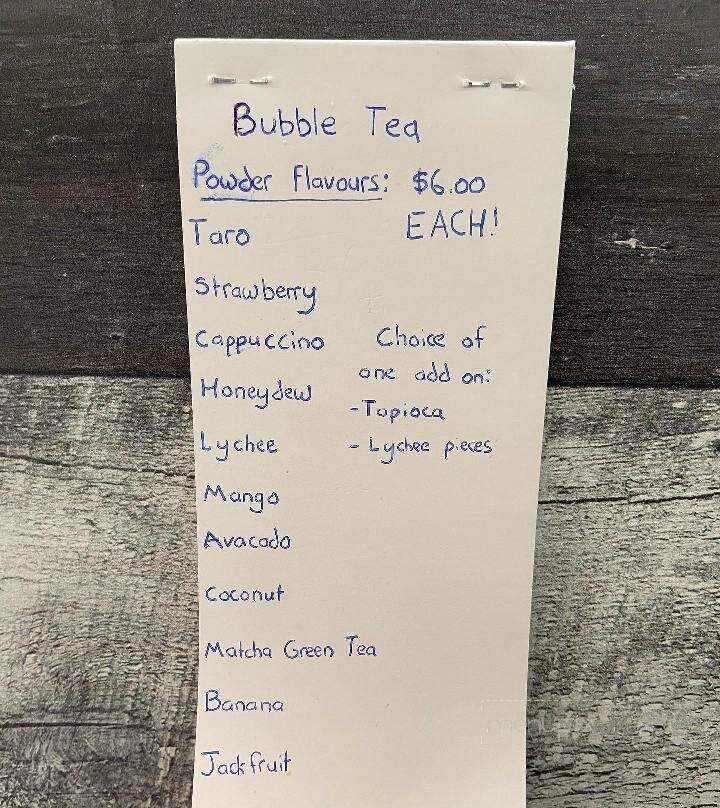 Bubble Tea
Powder Flavours: $6.00
EACH!
Taro
Strawberry
Cappuccino
Choice of
one add on:
Honeydew
-Tapioca
Lychee
- Lychee pieces
Mango
Avacado
Coconut
Matcha Green Tea
Banana
Jackfruit